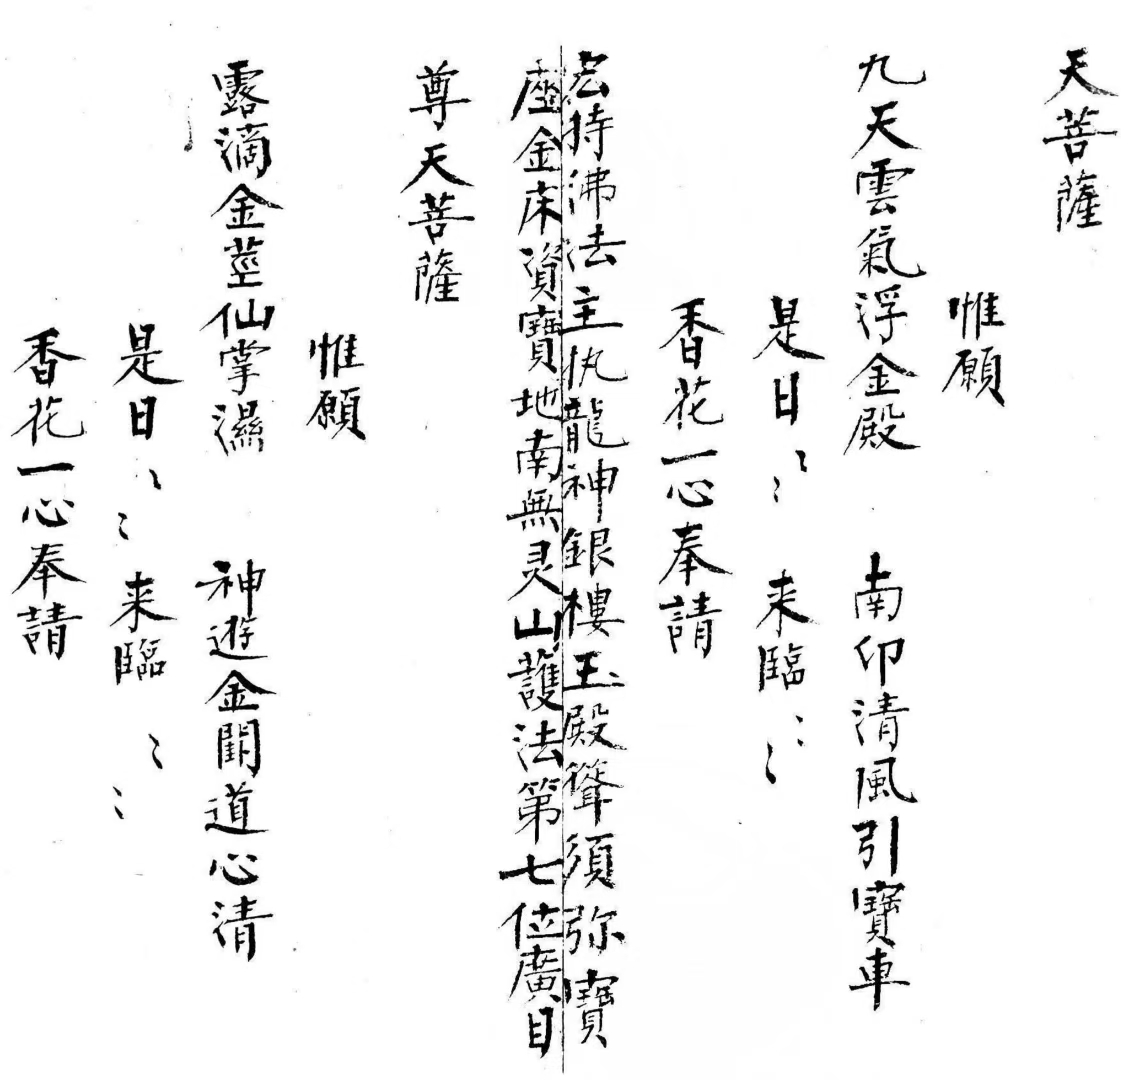 天菩薩
惟願
九天雲氣浮金殿 南印清風引寶車
是日〻〻来臨〻〻
香花一心奉請
宏持沸法主執龍神銀樓玉殿聳須弥寶
座金床資寶地南無灵山護法第七位廣目
尊天菩薩
惟願
露滴金莖仙掌濕 神遊金闕道心清
是日〻〻来臨〻〻
香花一心奉請